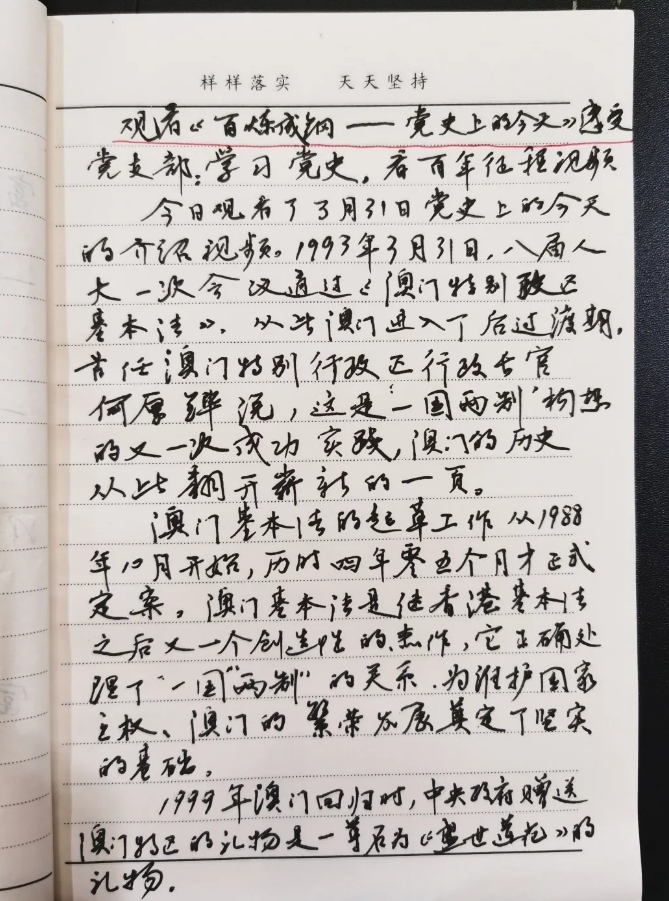 样样落实 天天坚持
观看《百炼成钢——党史上的今天》感受
党支部:学习党史,看百年征程视频
今日观看了3月31日党史上的今天
的介绍视频。1993年3月31日,八届人
大一次会议通过《澳门特别政区
基本法》,从此澳门进入了后过渡期。
首任澳门特别行政区行政长官
何厚铧说,这是“一国两制”构想
的又一次成功实践,澳门的历史
从此翻开崭新的一页。
澳门基本法的起草工作从1988
年10月开始,历时四年零五个月才正式
定案。澳门基本法是继香港基本法
之后又一个创造性的杰作,它正确处
理了“一国”“两制”的关系,为维护国家
主权、澳门的繁荣发展奠定了坚实
的基础。
1999年澳门回归时,中央政府赠送
澳门特区的礼物是一尊名为《盛世莲花》的
礼物。